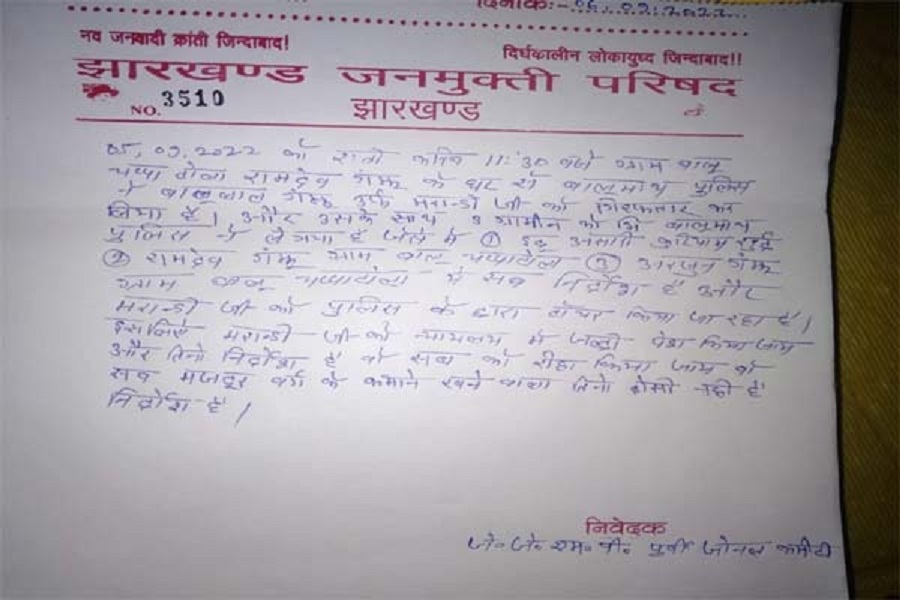 दिनांक:- 06.09.2022
नव जनवादी क्रांती जिन्दाबाद!
दिर्घकालीन लोकायुध्द जिन्दाबाद!!
झारखण्ड जनमुक्ती परिषद
NO. 3510 झारखण्ड
05,09,2022 को रात्री करिब 11:30 बजे ग्राम बालू
टोला रामदेव गंझू के घर से बालूमाथ पुलिस
ने गंझू उर्फ मरान्डी जी को गिरफतार कर
लिया है। और उसके साथ 3 ग्रामीन को भि बालूमाथ
पुलिस ने ले गया है जिसमे ①
② रामदेव गंझू ग्राम बालू ③ अरजुन गंझू
ग्राम बालू ये सब निर्दोश है और
मरान्डी जी को पुलिस के द्वारा टॉचर किया जा रहा है।
इसलिए मरान्डी जी को न्यायालय मे जल्दी पेश किया जाय
और तिनो निर्दोश है वो सब को रीहा किया जाय वो
सब मजदूर वर्ग के कमाने खाने वाला तिनो दोसी नही है
निर्दोश है।
निवेदक
जे॰ जे॰ एम॰ पी॰ पुर्वी जोनल कमीटी